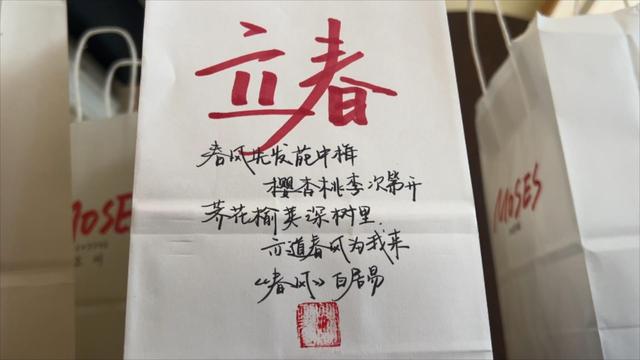 立春
春风先发苑中梅
樱杏桃李次第开
荠花榆荚深树里
亦道春风为我来
《春风》白居易
MOSES
MOSES